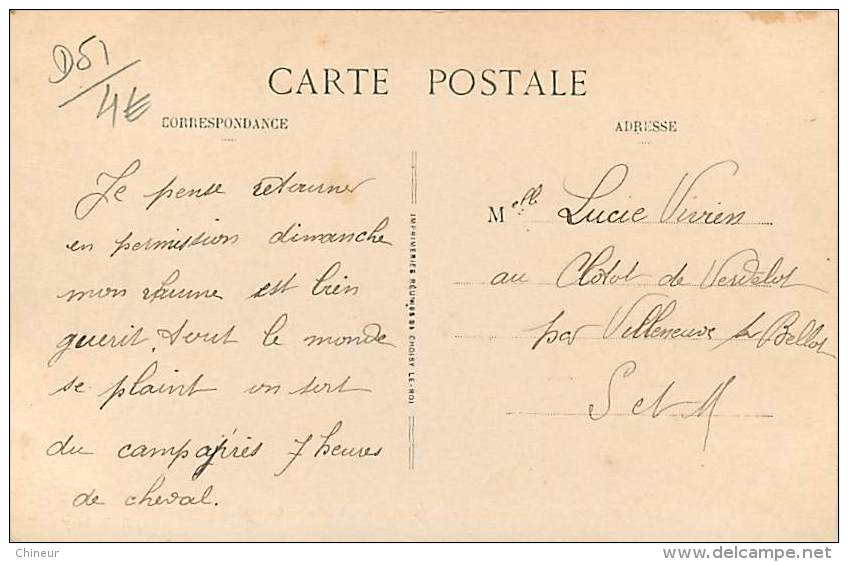 D51
4€
CARTE POSTALE
CORRESPONDANCE
ADRESSE
Je pense retourner
en permission dimanche
mon rhume est bien
guerit. tout le monde
se plaint on sort
du camp après 7 heures
de cheval.
IMPRIMERIES RÉUNIES DE CHOISY-LE-ROI
Melle Lucie Vivien
au de Verdelot
par Villeneuve s/ Bellot
S et M
Chineur
www.delcampe.net